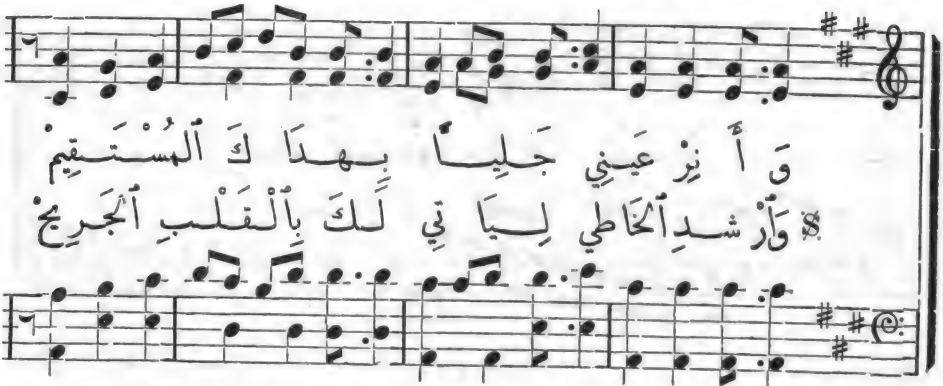 وَ أَ نِرْ عَيـنِي جَـلِيـــاً بِـهـدَا كَ ٱلْمُسْـتَـقِيمْ
وَٱرْ شـدِ ٱلْخَاطي لِـيـا تِي لَـكَ بِٱلْـقَـلْـبِ ٱلْجَرِيحْ